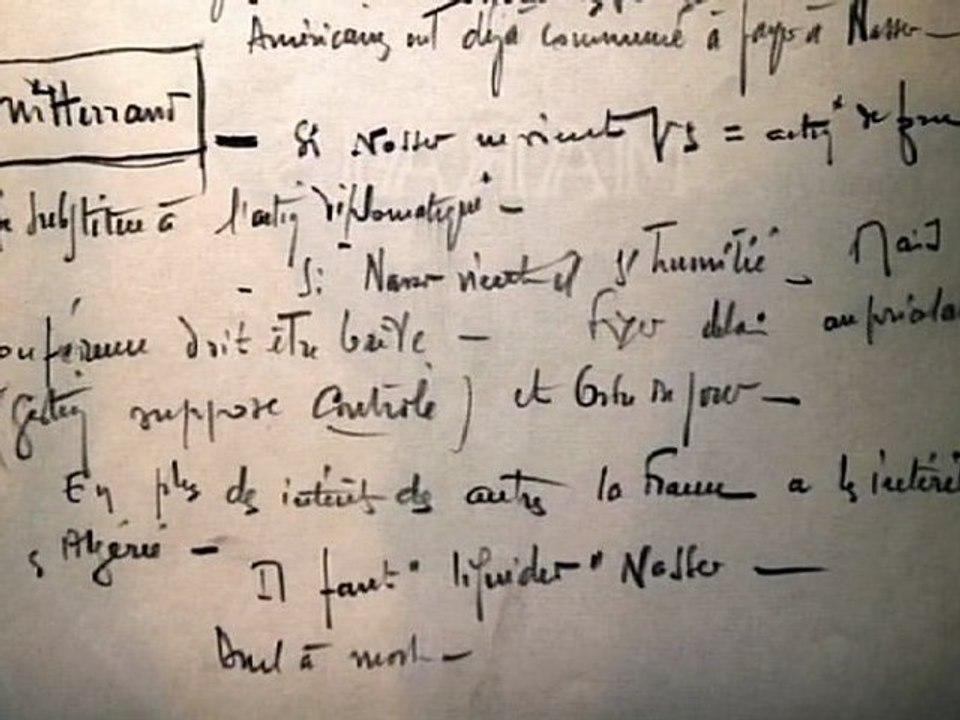 Américains ont déjà commencé à payer à Nasser —
Mitterrand — Si Nasser ne vient = action de
substitue à l'action diplomatique —
- Si Nasser vient il s'humilie - Mais
conférence doit être brève — Fixer délai au préalable
(gestion suppose Contrôle) et ordre du jour —
En plus des intérêts des autres la France a les intérêts
Algérie —
Il faut "liquider" Nasser —
Duel à mort —